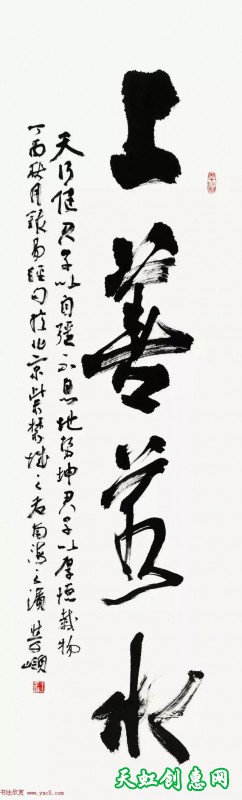 上善若水
天行健君子以自彊不息地势坤君子以厚德載物
丁酉秋月录易經句於北京紫禁城之右南海之濱
书法欣赏 www.yac8.com
天虹创惠网